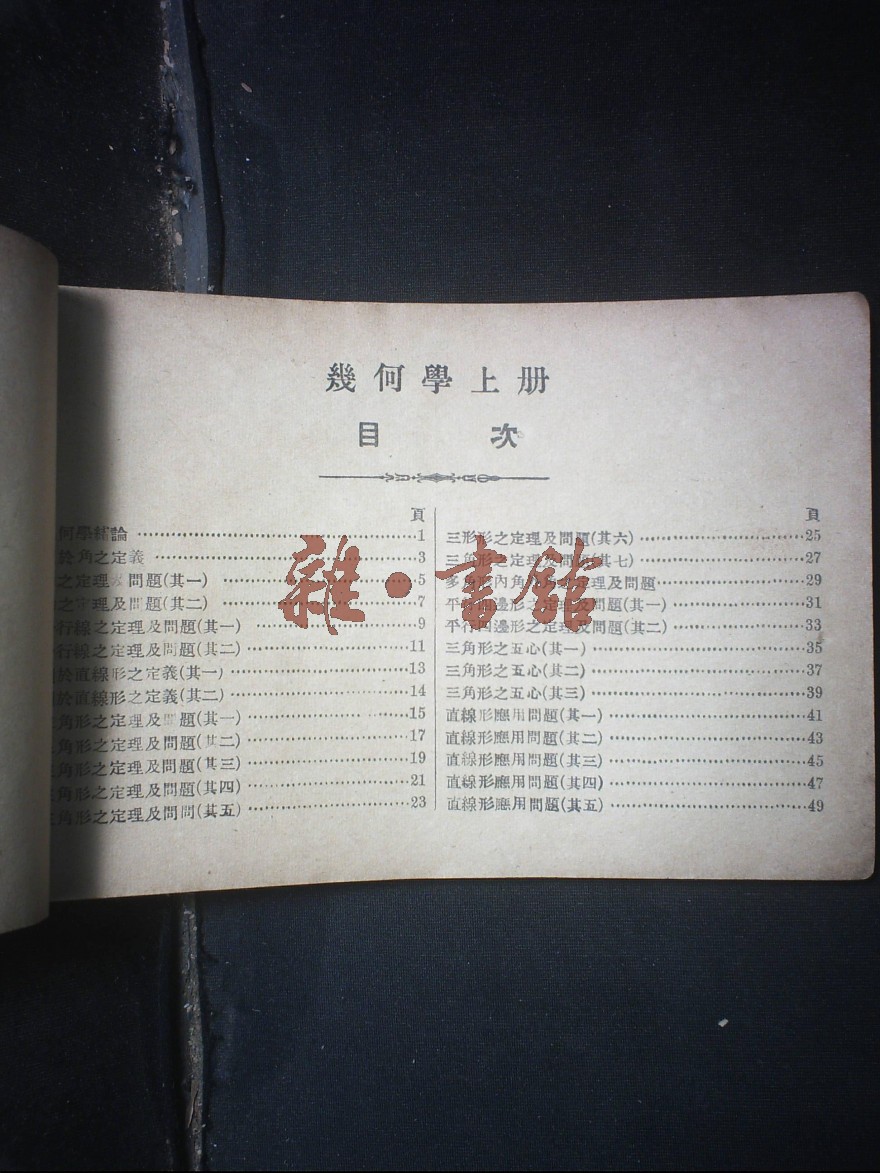 幾何學上册
目 次
頁
何學緒論 1
於角之定義 3
之定理及問題(其一) 5
之定理及問題(其二) 7
行線之定理及問題(其一) 9
行線之定理及問題(其二) 11
於直線形之定義(其一) 13
於直線形之定義(其二) 14
角形之定理及問題(其一) 15
角形之定理及問題(其二) 17
角形之定理及問題(其三) 19
角形之定理及問題(其四) 21
角形之定理及問問(其五) 23
頁
三形形之定理及問題(其六) 25
三角形之定理及問題(其七) 27
多角形內角 定理及問題 29
平行四邊形之定理及問題(其一) 31
平行四邊形之定理及問題(其二) 33
三角形之五心(其一) 35
三角形之五心(其二) 37
三角形之五心(其三) 39
直線形應用問題(其一) 41
直線形應用問題(其二) 43
直線形應用問題(其三) 45
直線形應用問題(其四) 47
直線形應用問題(其五) 49
雜·書館